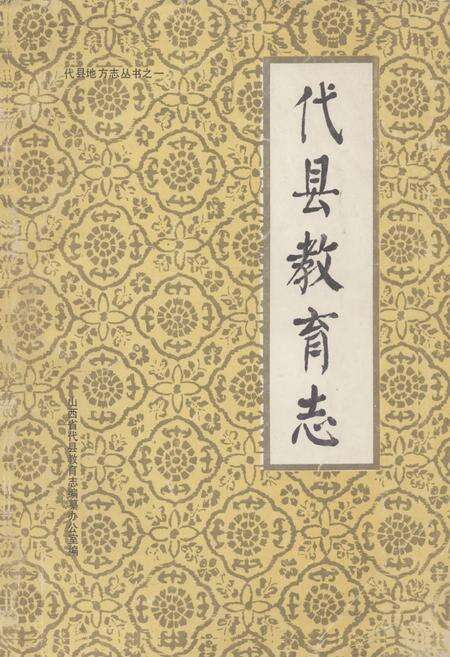 代县地方志丛书之一
代县教育志
山西省代县教育志编纂办公室编